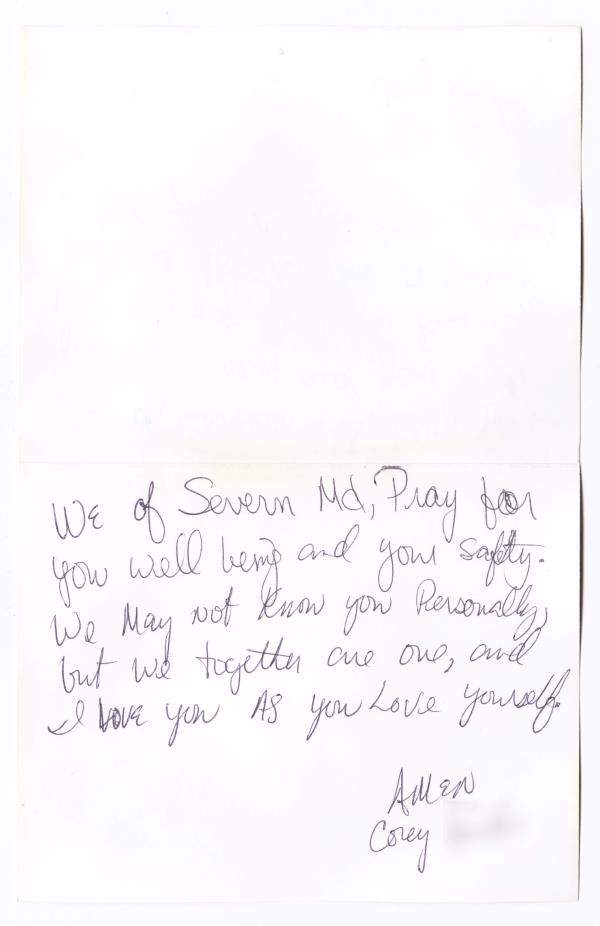 We of Severn Md, Pray for
your well being and your safty.
We May not Know you Personally,
but we together are one, and
I Love you As you Love yourself.
Amen
Corey